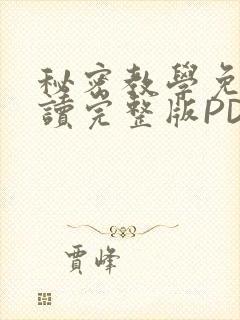 秘密教學免
讀完整版PD
賈峰